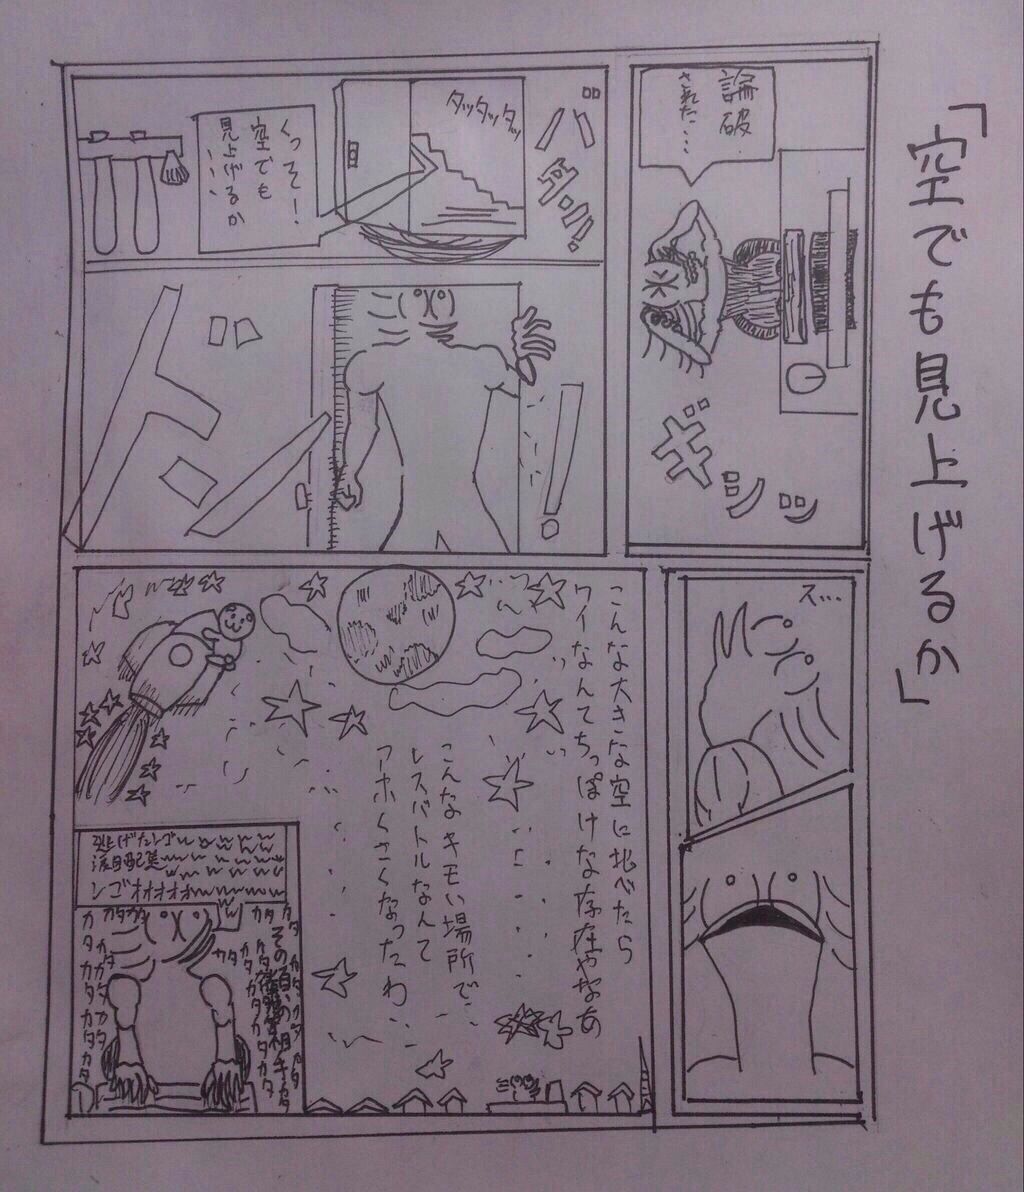 「空でも見上げるか」
論破
された…
ギシッ
バタン!!
タッタッタッ
くっそー!
空でも
見上げるか
ス…
こんな大きな空に比べたら
ワイなんてちっぽけな存在やなあ
こんなキモい場所で
レスバトルなんて
アホくさくなったわ
逃げたンゴwwwww
涙目敗走wwwwww
ンゴオオオオオwwwww
その頃の相手
カタカタカタカタカタカタ